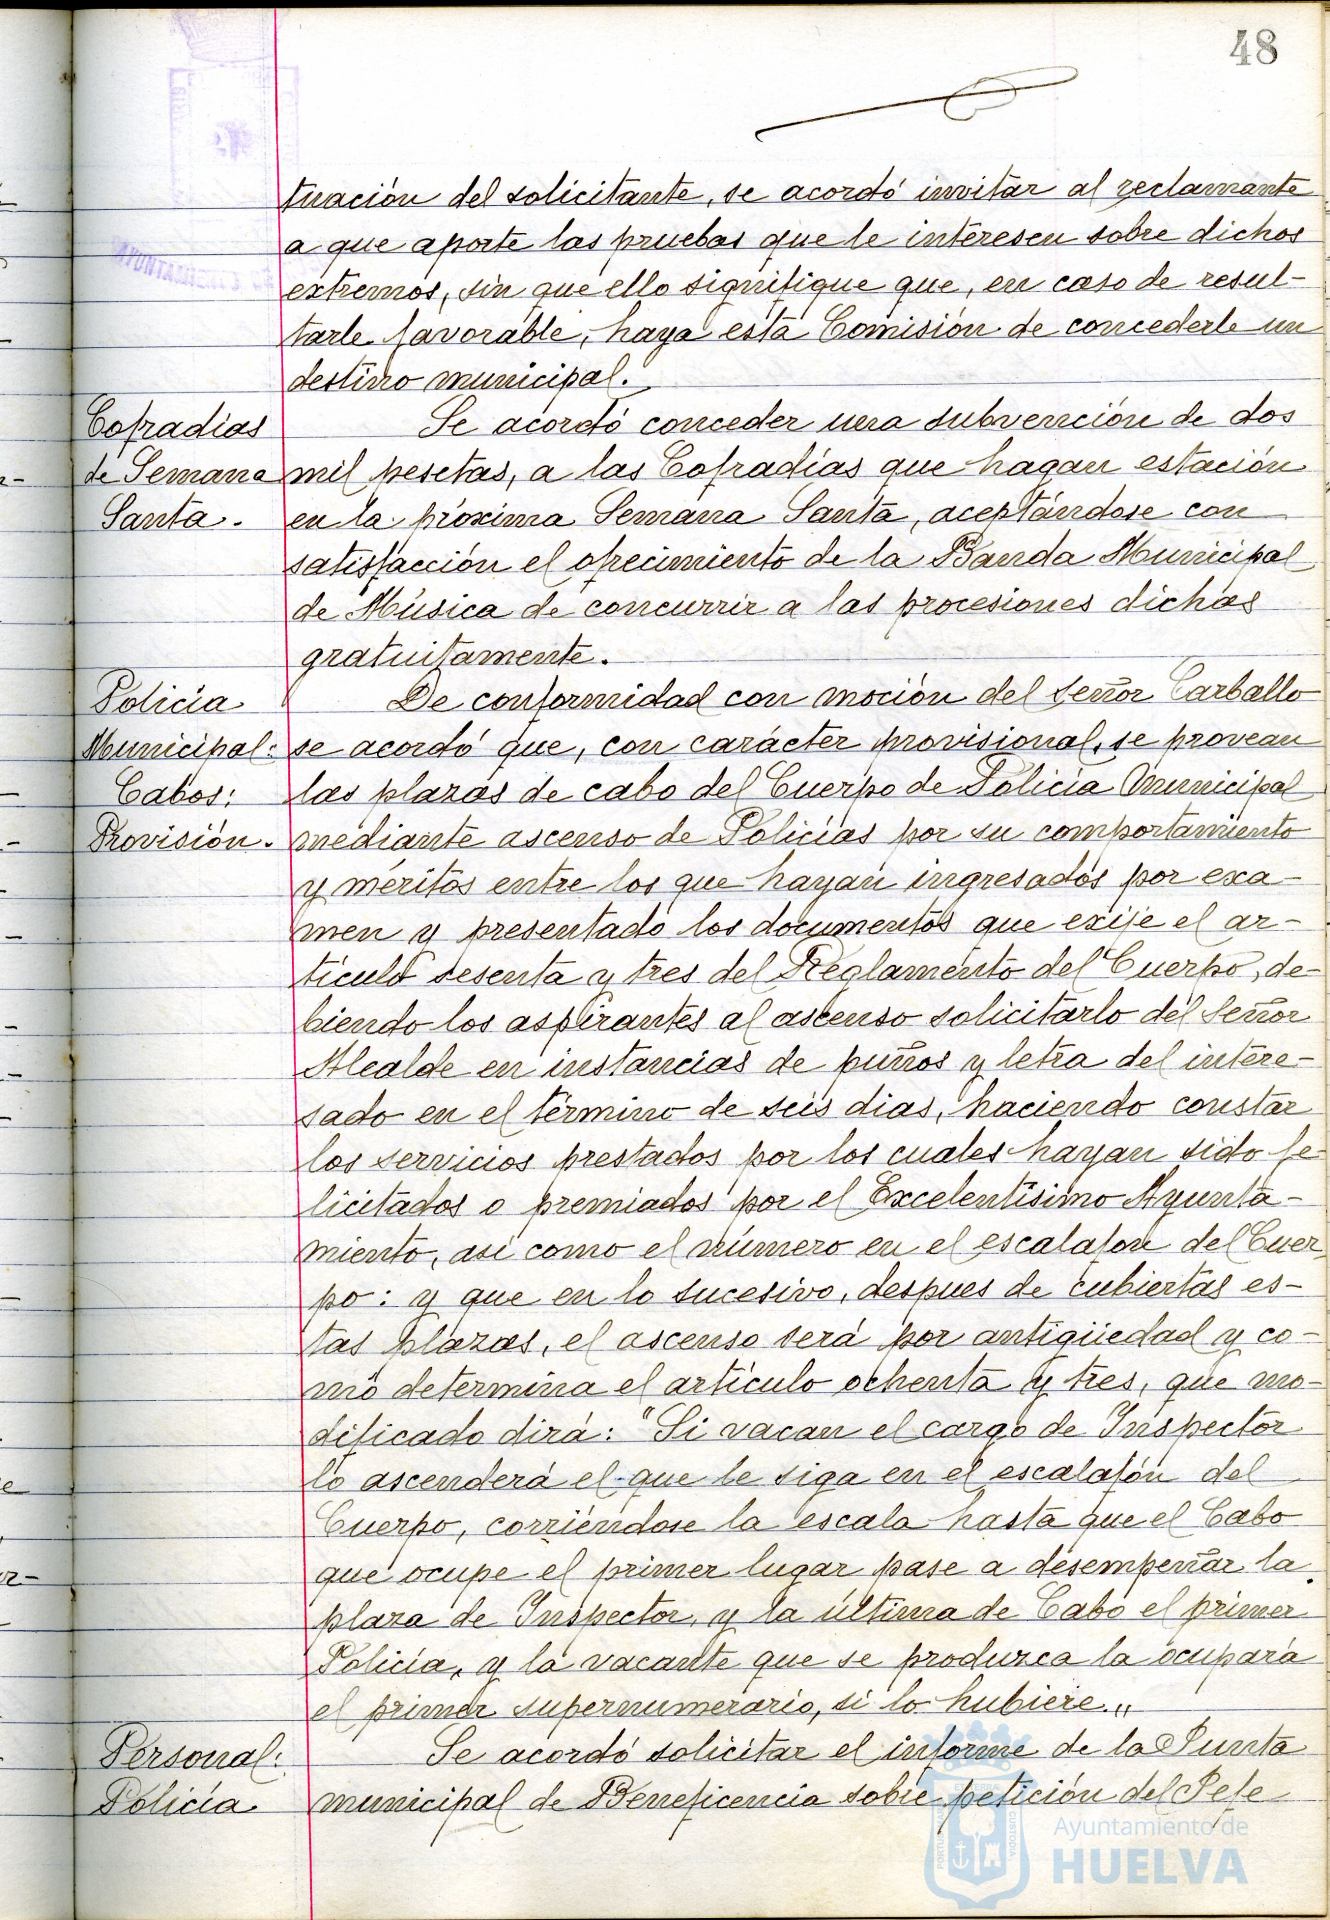 48
tuación del solicitante, se acordó invitar al reclamante
a que aporte las pruebas que le interesen sobre dichos
extremos, sin que ello signifique que, en caso de resul-
tarle favorable, haya esta Comisión de concederle un
destino municipal.
Cofradías
de Semana
Santa.
Se acordó conceder una subvención de dos
mil pesetas, a las Cofradías que hagan estación
en la próxima Semana Santa, aceptándose con
satisfacción el ofrecimiento de la Banda Municipal
de Música de concurrir a las procesiones dichas
gratuitamente.
Policía
Municipal:
Cabos:
Provisión.
De conformidad con moción del señor Carballo
se acordó que, con carácter provisional, se provean
las plazas de cabo del Cuerpo de Policía Municipal
mediante ascenso de Policías por su comportamiento
y méritos entre los que hayan ingresados por exa-
men y presentado los documentos que exije el ar-
tículo sesenta y tres del Reglamento del Cuerpo, de-
biendo los aspirantes al ascenso solicitarlo del Señor
Alcalde en instancias de puños y letra del intere-
sado en el término de seis dias, haciendo constar
los servicios prestados por los cuales hayan sido fe-
licitados o premiados por el Excelentísimo Ayunta-
miento, así como el número en el escalafon del Cuer
po: y que en lo sucesivo, despues de cubiertas es-
tas plazas, el ascenso será por antigüedad y co-
mo determina el artículo ochenta y tres, que mo-
dificado dirá: "Si vacan el cargo de Inspector
lo ascenderá el que le siga en el escalafón del
Cuerpo, corriéndose la escala hasta que el Cabo
que ocupe el primer lugar pase a desempeñar la
plaza de Inspector, y la última de Cabo el primer
Policía, y la vacante que se produzca la ocupará
el primer supernumerario, si lo hubiere."
Personal:
Policía
Se acordó solicitar el informe de la Junta
municipal de Beneficencia sobre petición del Jefe
AYUNTAMIENTO DE
PORTUS
ET TERRÆ
CUSTODIA
Ayuntamiento de
HUELVA